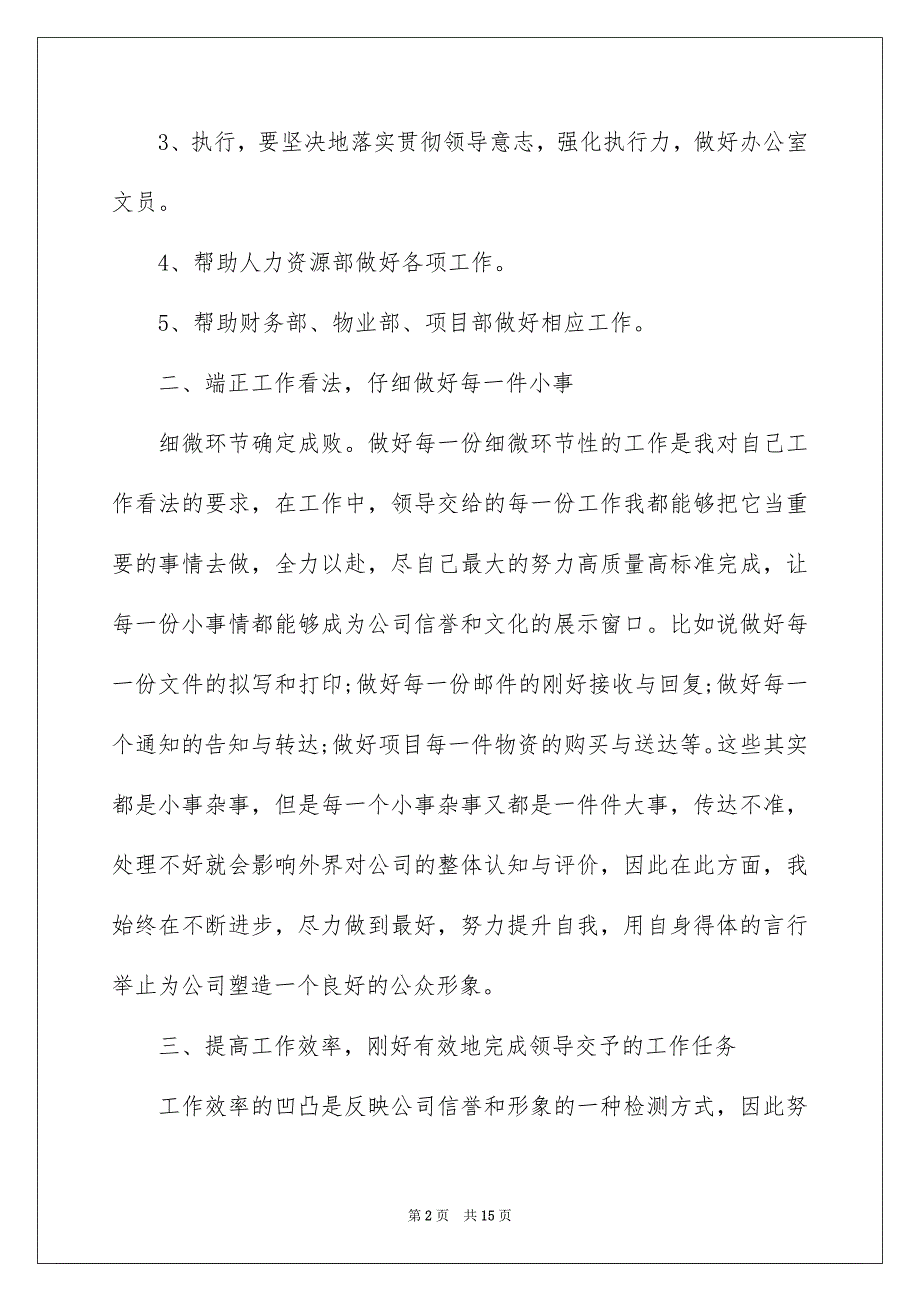 3、执行，要坚决地落实贯彻领导意志，强化执行力，做好办公室
文员。
4、帮助人力资源部做好各项工作。
5、帮助财务部、物业部、项目部做好相应工作。
二、端正工作看法，仔细做好每一件小事
细微环节确定成败。做好每一份细微环节性的工作是我对自己工
作看法的要求，在工作中，领导交给的每一份工作我都能够把它当重
要的事情去做，全力以赴，尽自己最大的努力高质量高标准完成，让
每一份小事情都能够成为公司信誉和文化的展示窗口。比如说做好每
一份文件的拟写和打印;做好每一份邮件的刚好接收与回复;做好每一
个通知的告知与转达;做好项目每一件物资的购买与送达等。这些其实
都是小事杂事，但是每一个小事杂事又都是一件件大事，传达不准，
处理不好就会影响外界对公司的整体认知与评价，因此在此方面，我
始终在不断进步，尽力做到最好，努力提升自我，用自身得体的言行
举止为公司塑造一个良好的公众形象。
三、提高工作效率，刚好有效地完成领导交予的工作任务
工作效率的凹凸是反映公司信誉和形象的一种检测方式，因此努
第 2 页 共 15 页